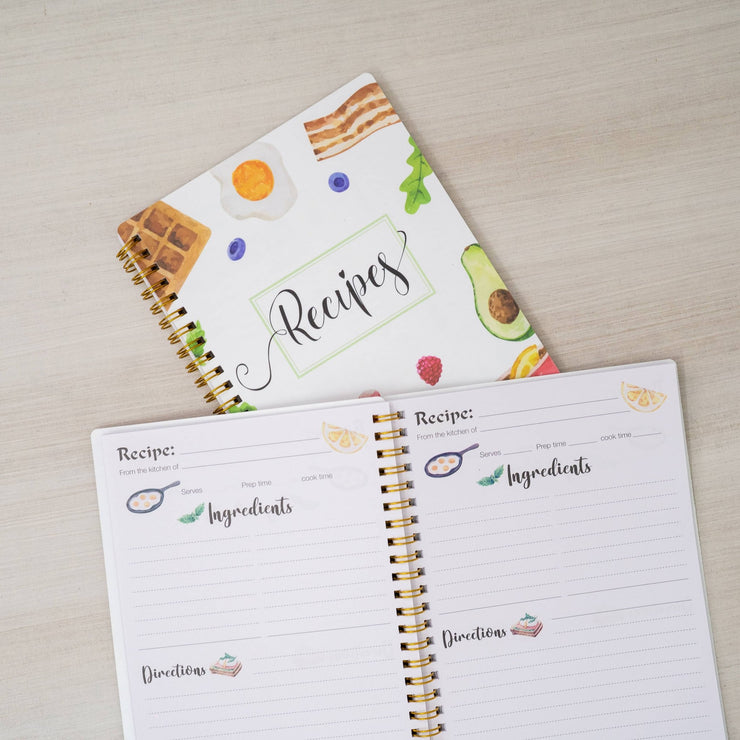 Recipes
Recipe:
From the kitchen of
Serves Prep time cook time
Ingredients
Directions
Recipe:
From the kitchen of
Serves Prep time cook time
Ingredients
Directions